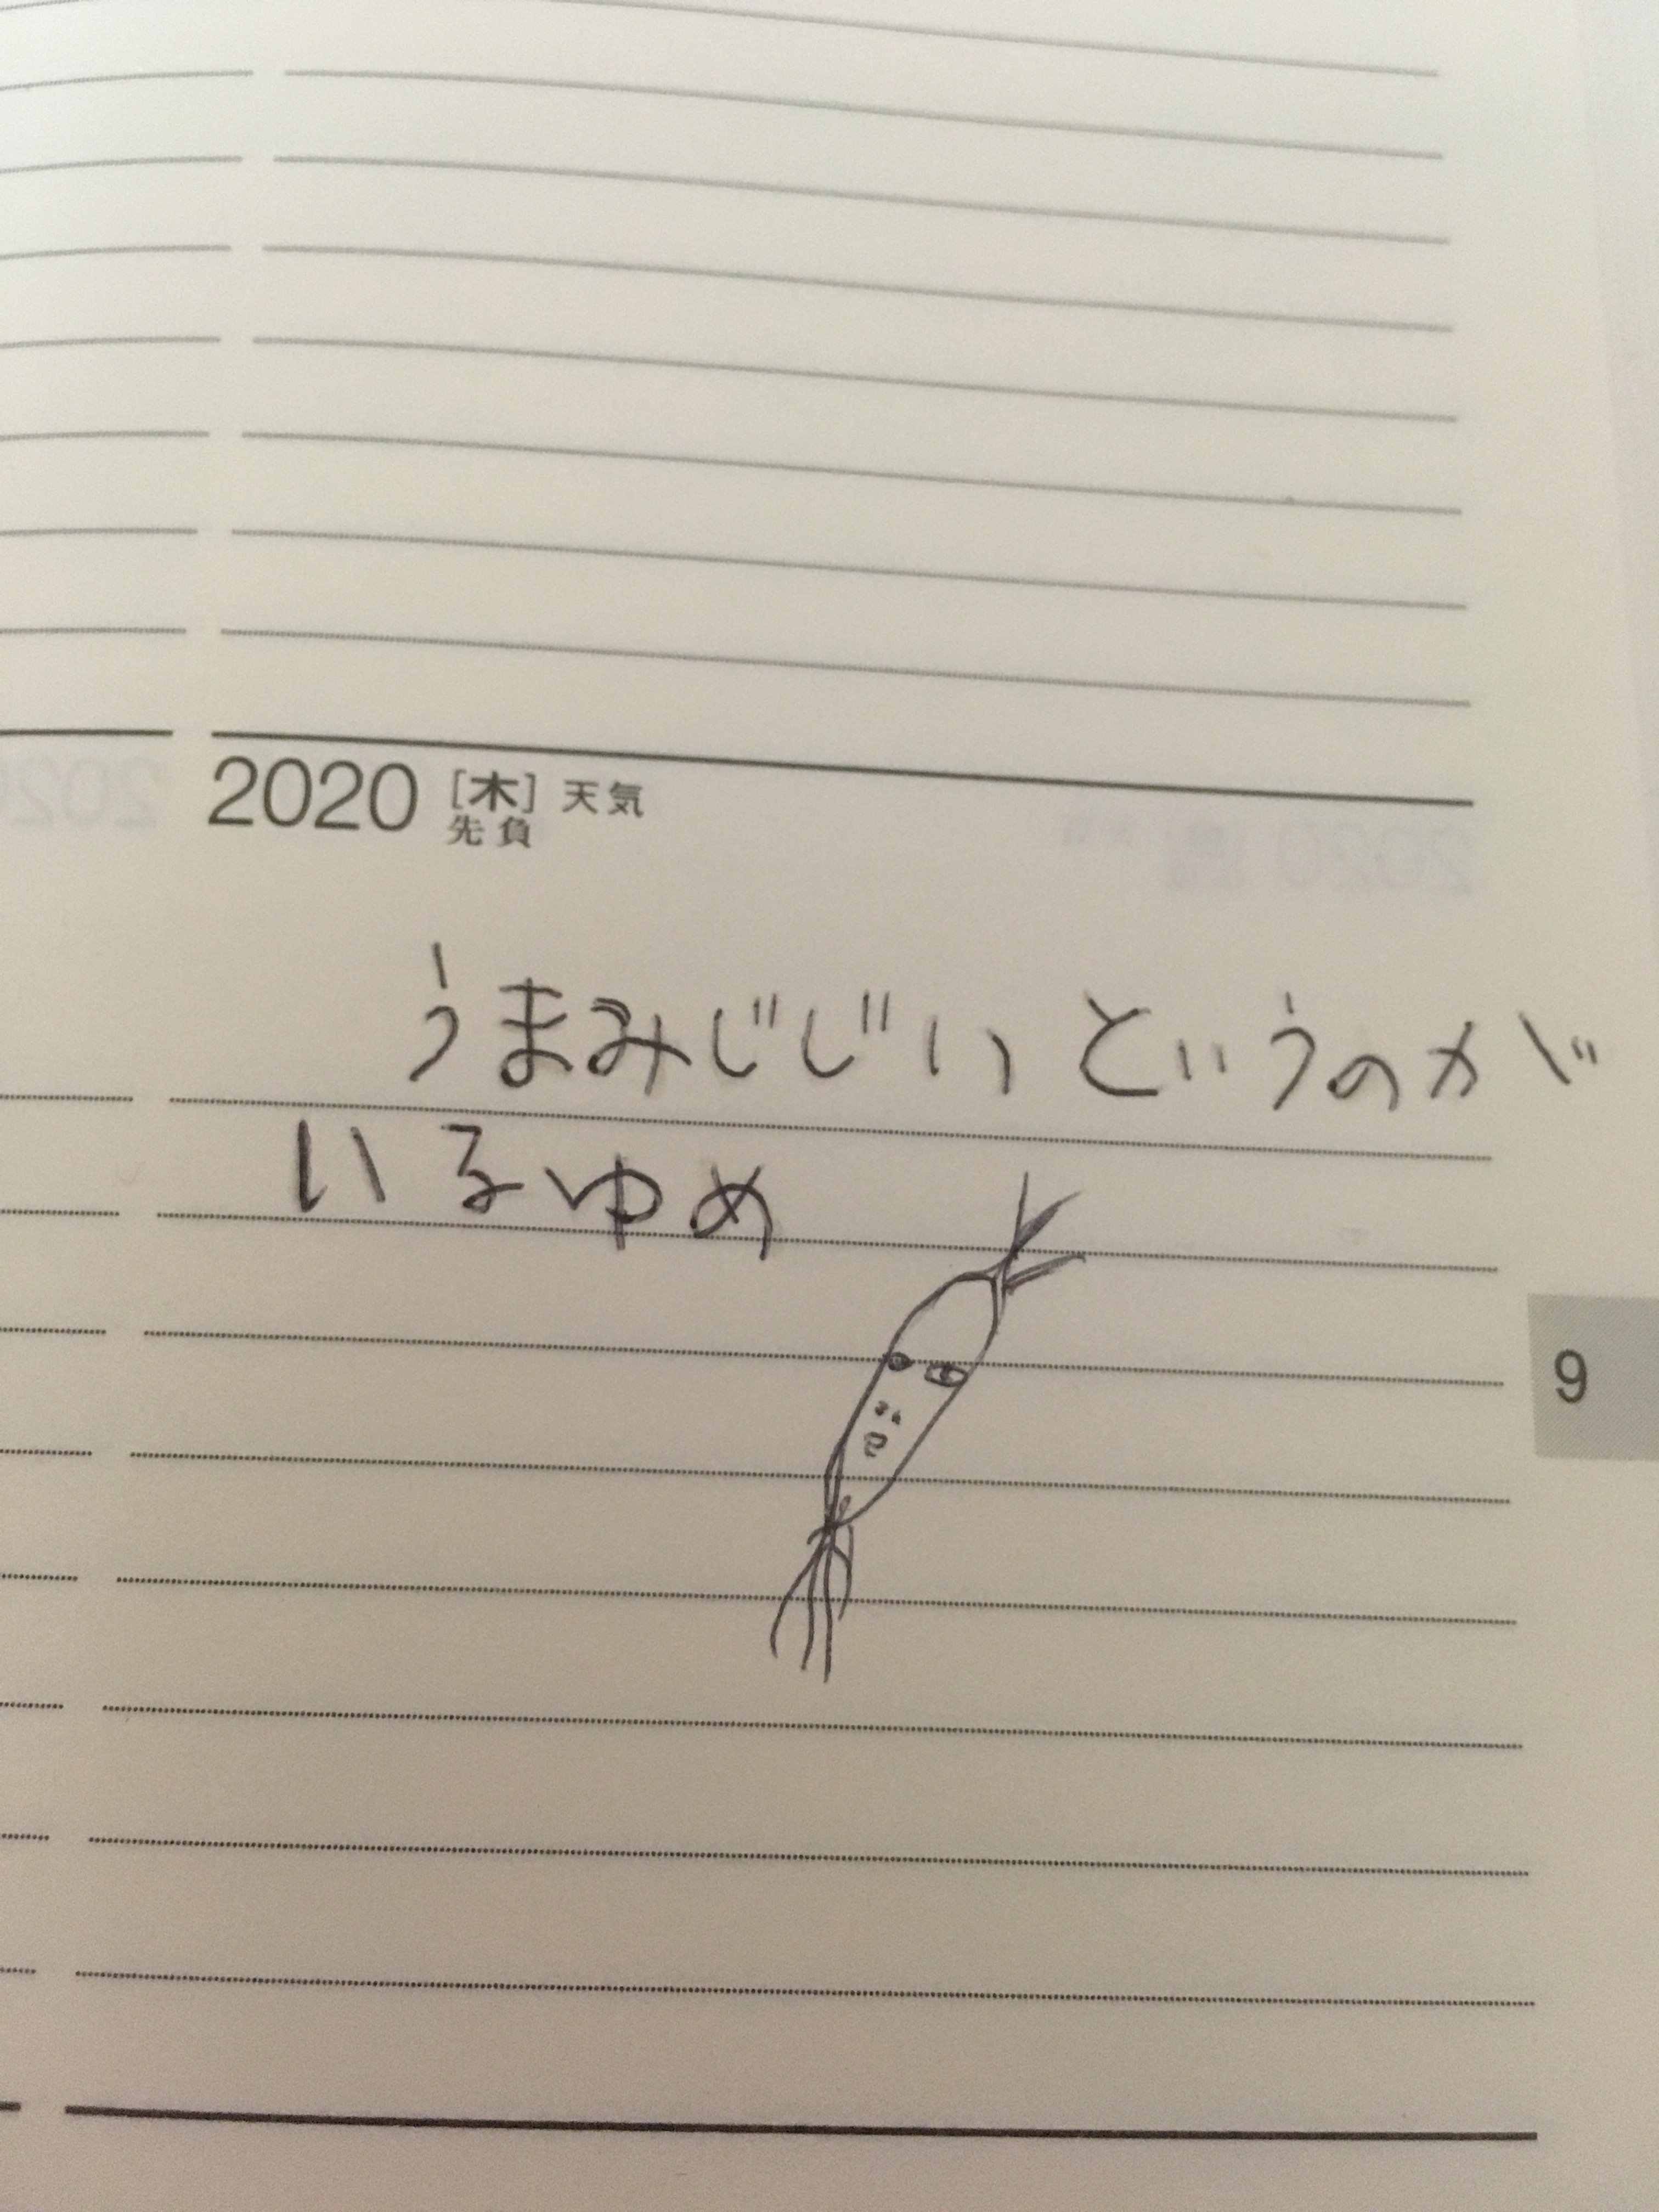 2020 [木] 天気
先負
うまみじじいというのが
いるゆめ
9